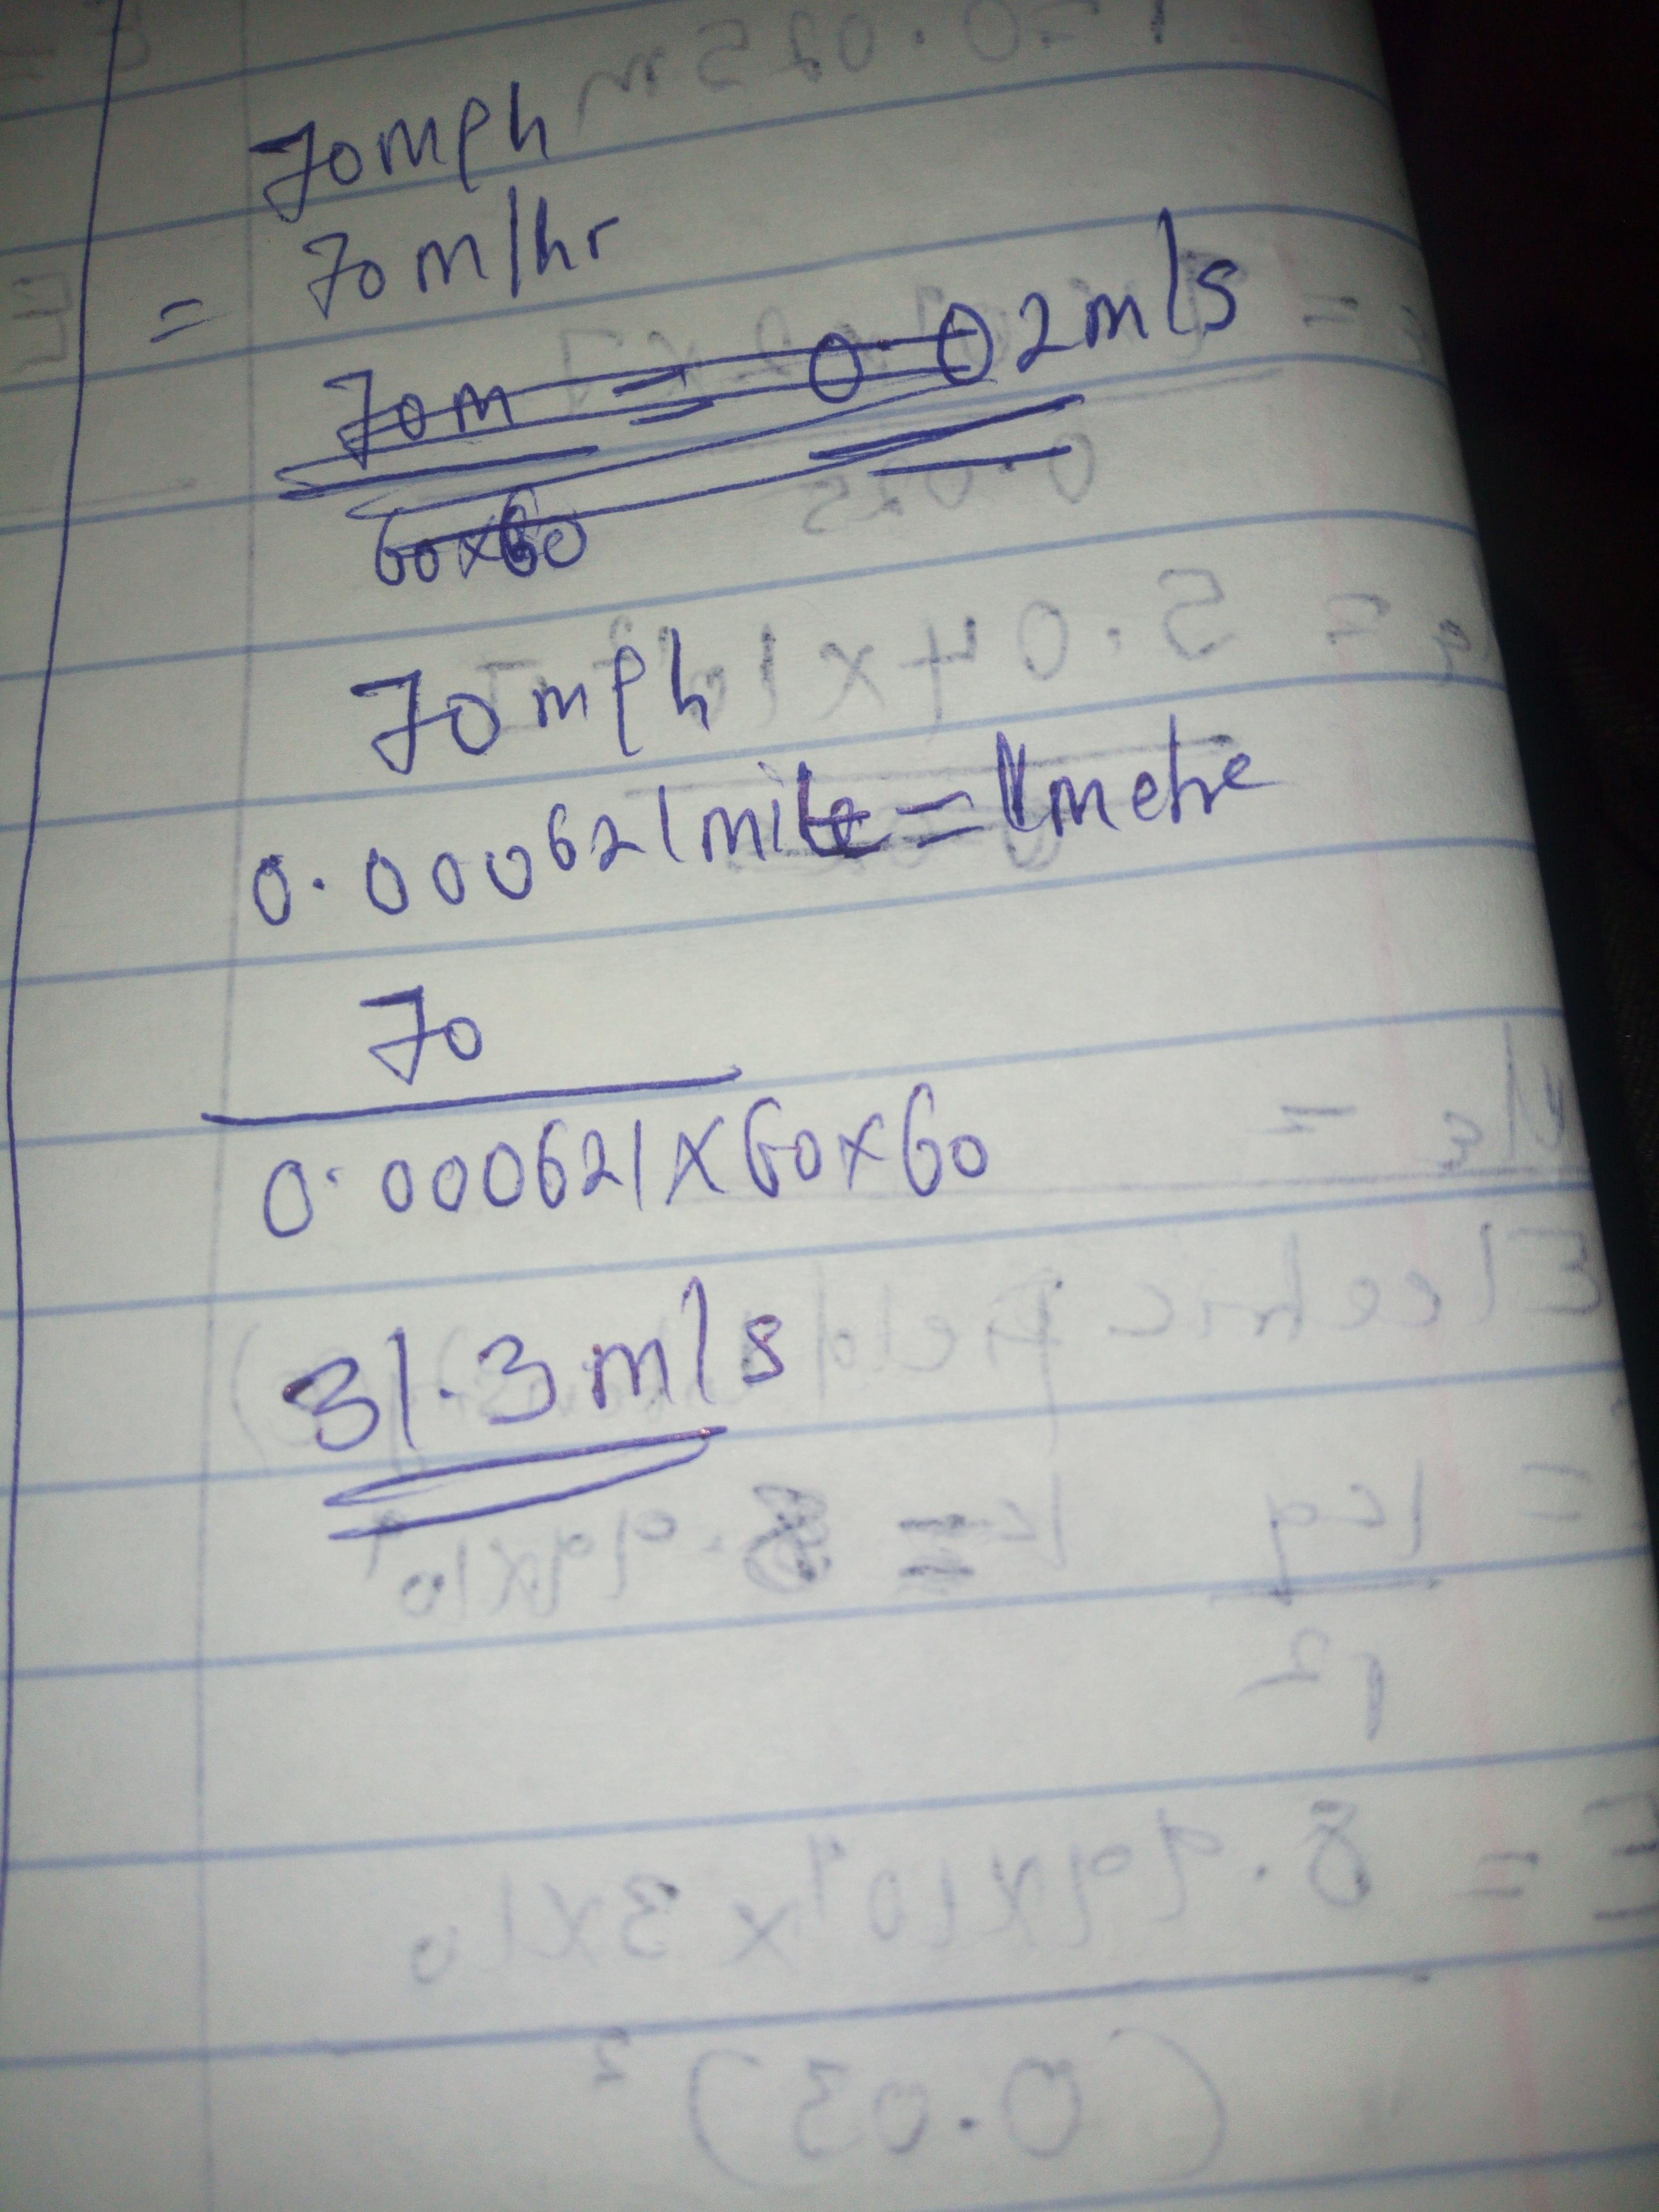 70mph
= 70m/hr
70m = 0.02m/s
60x60
70mph
0.000621mile = 1metre
70
0.000621x60x60
31.3m/s